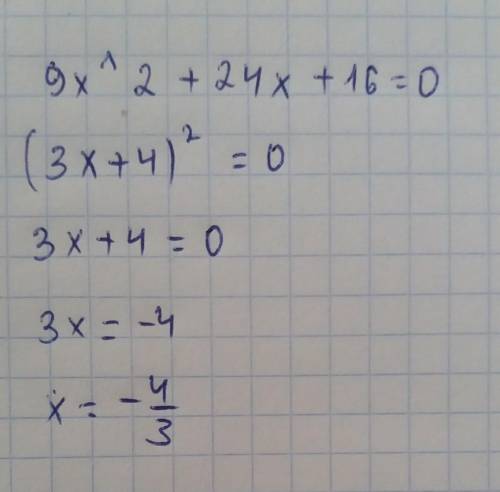 9x^2 + 24x + 16 = 0
(3x+4)² = 0
3x+4 = 0
3x = -4
x = -4/3